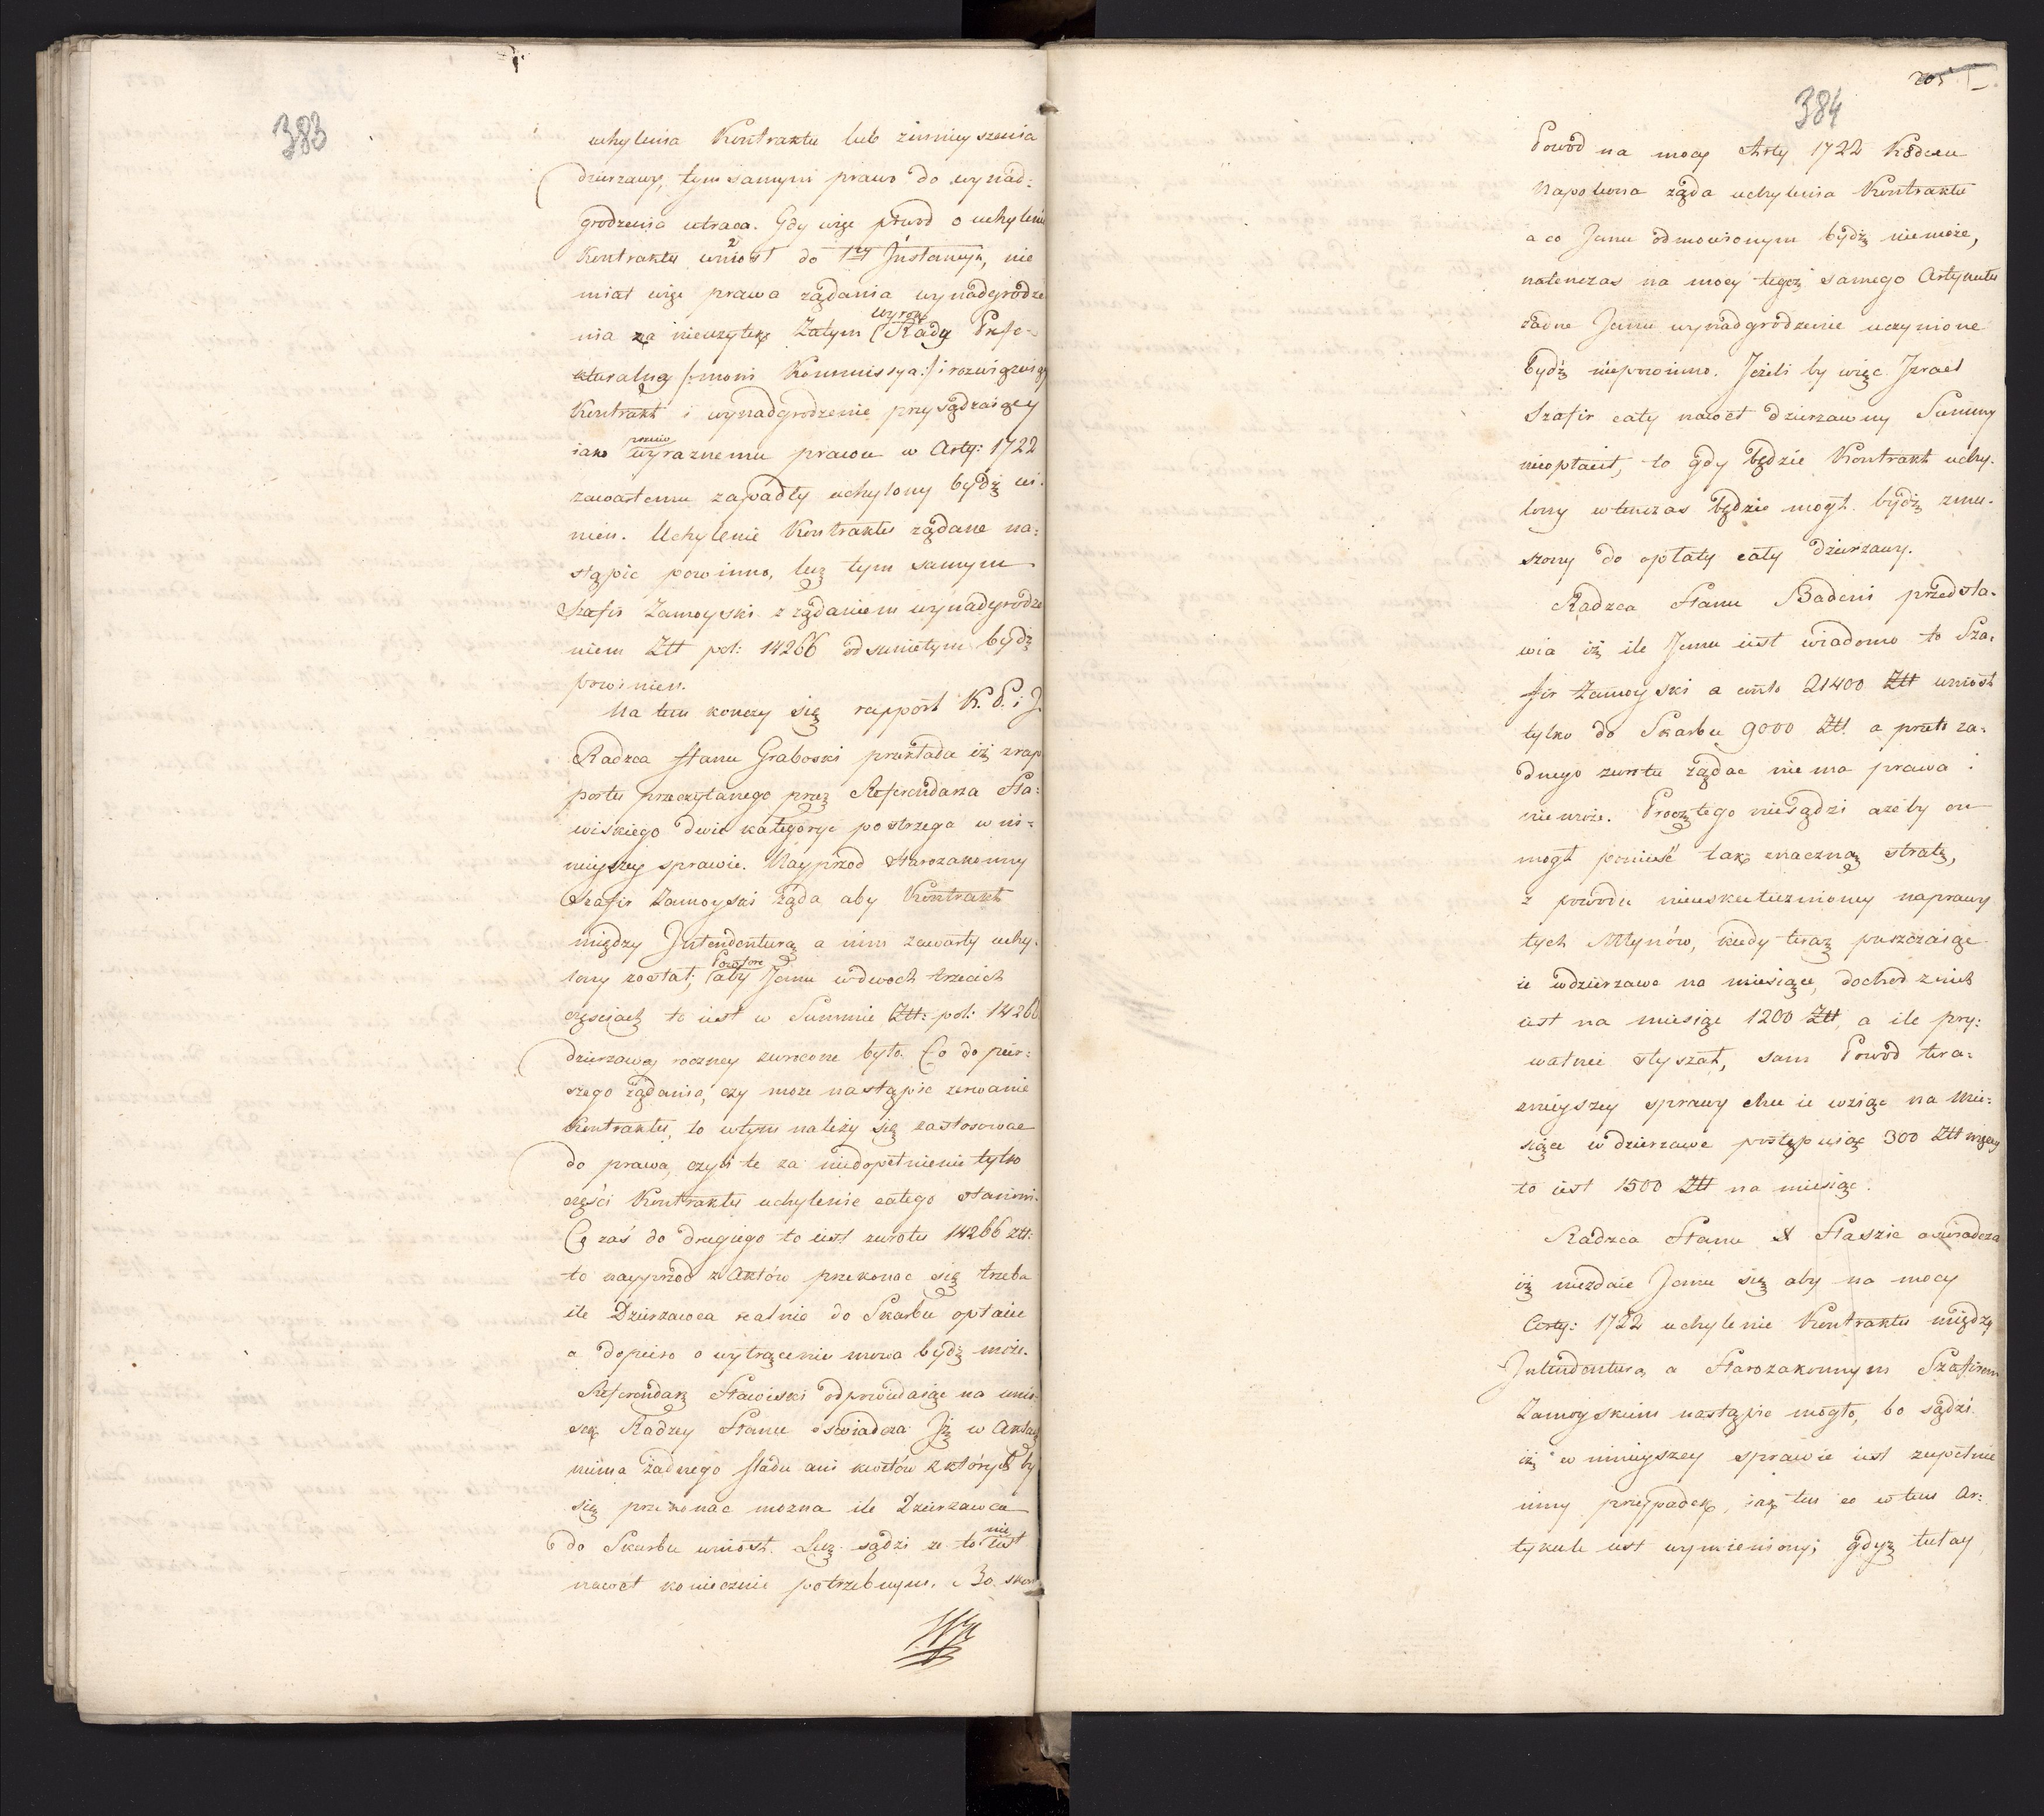 383
uchylenia Kontraktu lub zmnieyszenia
dzierzawy, tym samym prawo do wynad:
grodzenia utraca. Gdy więc powod o uchylenie
Kontraktu wniosł do 1ey Jnstancyi, nie
miał więc prawa ządania wynadgrodze
nia za nieuzytek Zatym Wyrok Rady Prefe-
kturalney /:mowi Kommissya:/ i rozwięzuiący
Kontrakt i wynadgrodzenie przysądzaiący
iako przeciw wyraznemu prawu w Arty: 1722
zawartemu zapadły uchylony bydź wi-
nien. Uchylenie Kontraktu ządane na:
stąpic powinno, lecz tym samym
Szafir Zamoyski z ządaniem wynadgrodze
niem Ztt pol: 14266 odsunietym bydź
powinien.
Na tem konczy się rapport K. P. i J.
Radzca Stanu Graboski przekłada iż z rap
portu przeczytanego przez Referendarza Sta:
wiskiego dwie kategorye postrzega w ni-
nieyszey sprawie. Nayprzod Starozakonny
Szafir Zamoyski ząda aby Kontrakt
między Jntendenturą a nim zawarty uchy-
lony został; Powtore aby Jemu w dwoch trzecich
częsciach to iest w Summie Ztt: pol: 14266
dzierzawy roczney zwrocone było. Co do pier:
szego ządania, czy moze nastąpic zerwanie
Kontraktu, to w tym nalezy się zastosowac
do prawa, czyli te za niedopełnienie tylko
częsci Kontraktu uchylenie całego stanowi.
Co zaś do drugiego to iest zwrotu 14266 ztt:
to nayprzod z Aktów przekonac się trzeba
ile Dzierzawca realnie do Skarbu opłacił
a dopiero o wytrącenie mowa bydź moze.
Referendarz Stawiski odpowiadaiąc na wnio-
sek Radzcy Stanu oswiadcza Jż w Aktach
niema zadnego sladu ani kwitów z których by
się przekonac mozna ile Dzierzawca
do Skarbu wniosł. Lecz sądzi ze to nie iest
nawet koniecznie potrzebnym. Bo skoro
205
384
Powod na mocy Arty 1722 Kodexu
Napoleona ząda uchylenia Kontraktu
a co Jemu odmowionym bydź niemoże,
natenczas na mocy tegoż samego Artykułu
zadne Jemu wynadgrodzenie uczynione
bydź niepowinno. Jezeli by więc Jzrael
Szafir cały nawet dzierzawney Summy
nieopłacił, to gdy będzie Kontrakt uchy-
lony wtenczas będzie mogł bydź zmu-
szony do opłaty cały dzierzawy.
Radzca Stanu Badeni przedsta-
wia iż ile Jemu iest wiadomo to Sza-
fir Zamoyski a conto 21400 Ztt wniosł
tylko do Skarbu 9000 Ztt a przeto za-
dnego zwrotu żądac nie ma prawa i
nie może. Procz tego niesądzi azeby on
mogł ponieść tak znaczną stratę,
z powodu nieuskuteczniony naprawy
tych Młynów, kiedy teraz puszczaiąc
ie w dzierzawe na miesiące, dochod z nich
iest na miesiąc 1200 Ztt, a ile pry:
watnie słyszał, sam Powod tera-
znieyszey sprawy chce ie wziąc na mie:
siące w dzierzawe postępuiąc 300 Ztt więcey
to iest 1500 Ztt na miesiąc.
Radzca Stanu X Staszic oswiadcza
iż niezdaie Jemu się aby na mocy
Arty: 1722 uchylenie Kontraktu między
Jntendenturą a Starozakonnym Szafirem
Zamoyskiem nastąpic mogło, bo sądzi
iż w ninieyszey sprawie iest zupełnie
inny przypadek, iak ten co w tem Ar:
tykule iest wymieniony; gdyz tutay